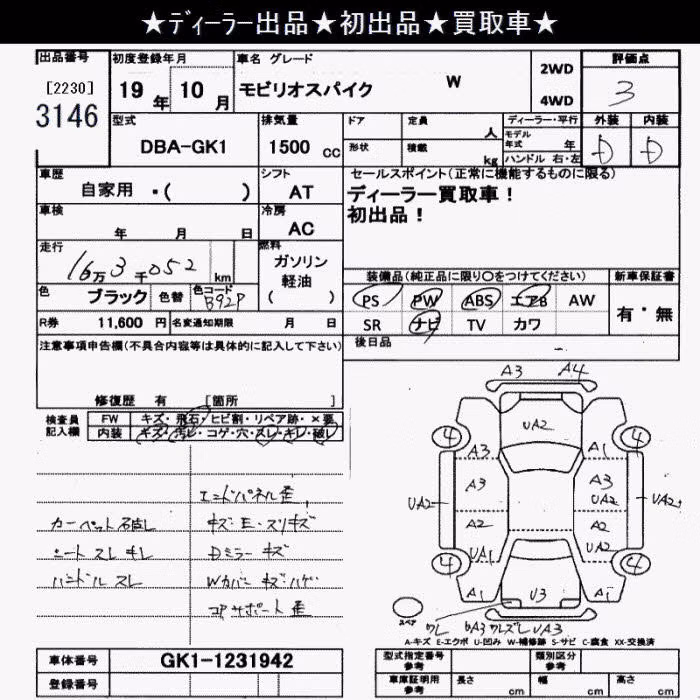 ★ディーラー出品★初出品★買取車★
出品番号 初度登録年月 車名 グレード 2WD 4WD 評価点
[2230] 3146 19年 10月 モビリオスパイク W 3
型式 排気量 ドア 定員 人 ディーラー・平行 外装 内装
DBA-GK1 1500 cc 形状 積載 kg モデル年式 年 D D
ハンドル 右・左
車歴 シフト セールスポイント(正常に機能するものに限る)
自家用 ・( ) AT ディーラー買取車！
初出品！
車検 年 月 日 冷房 AC
走行 16万3千052 km 燃料 ガソリン 軽油 ( )
装備品(純正品に限り○をつけてください) 新車保証書
色 ブラック 色替 色コード B92P PS PW ABS エアB AW 有・無
R券 11,600 円 名変通知期限 月 日 SR ナビ TV カワ
注意事項申告欄(不具合内容等は具体的に記入して下さい) 後日品
修復歴 有 [箇所 ]
検査員記入欄 FW キズ・飛石・ヒビ割・リペア跡・×要
内装 キズ・汚レ・コゲ・穴・スレ・キレ・破レ
エンドパネル歪
カーペット破レ キズ・E・スリキズ
シートスレ キレ Dミラーキズ
ハンドルスレ Wカバーキズ・ハゲ
コアサポート歪
A3 A4
UA2
4 4
A3 A1
A3 A3 UA2
UA2 UA2
A2 A2
UA1 UA2
4 4
A1 U3 A1
スペア ワレ bA3 ワレズレ UA3
A-キズ E-エクボ U-凹み W-補修跡 S-サビ C-腐食 XX-交換済
車体番号 GK1-1231942 型式指定番号 参考 類別区分 参考
登録番号 車庫証明用 参考 長さ cm 幅 cm 高さ cm